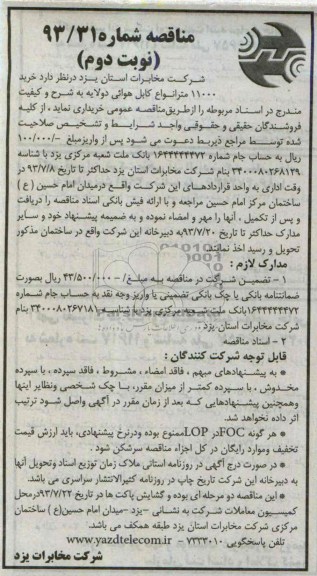 مناقصه شماره ۹۳/۳۱
(نوبت دوم)
شرکت مخابرات استان یزد درنظر دارد خرید
۱۱۰۰۰ مترانواع کابل هوائی دولایه به شرح و کیفیت
مندرج در اسناد مربوطه را ازطریق مناقصه عمومی خریداری نماید ، از کلیه
فروشندگان حقیقی و حقوقی واجد شرایط و تشخیص صلاحیت
شده توسط مراجع ذیربط دعوت می شود پس از واریزمبلغ ۱۰۰/۰۰۰/-
ریال به حساب جام شماره ۱۶۴۴۴۴۴۴۷۲ بانک ملت شعبه مرکزی یزد با شناسه
۳۴۰۰۰۸۰۲۶۸۱۳۹ بنام شرکت مخابرات استان یزد حداکثر تا تاریخ ۹۳/۷/۸ در
وقت اداری به واحد قراردادهای این شرکت واقع درمیدان امام حسین ( ع )
ساختمان مرکز امام حسین مراجعه و با ارائه فیش بانکی اسناد مناقصه را دریافت
و پس از تکمیل ، آنها را مهر و امضاء نموده و به ضمیمه پیشنهاد خود و سایر
مدارک حداکثر تا تاریخ ۹۳/۷/۲۰به دبیرخانه این شرکت واقع در ساختمان مذکور
تحویل و رسید اخذ نمایند.
مدارک لازم :
۱ - تضمین شرکت در مناقصه به مبلغ/- ۴۳/۵۰۰/۰۰۰ ریال بصورت
ضمانتنامه بانکی یا چک بانکی تضمینی یا واریز وجه نقد به حساب جام شماره
۱۶۴۴۴۴۴۴۷۲بانک ملت شعبه مرکزی یزد با شناسه ۳۴۰۰۰۸۰۲۶۷۱۸۱ بنام
شرکت مخابرات استان یزد .
۲ - اسناد مناقصه
قابل توجه شرکت کنندگان :
• به پیشنهادهای مبهم ، فاقد امضاء ، مشروط ، فاقد سپرده ، با سپرده
مخدوش ، با سپرده کمتر از میزان مقرر، با چک شخصی ونظایر اینها
وهمچنین پیشنهادهایی که بعد از زمان مقرر در آگهی واصل شود ترتیب
اثر داده نخواهد شد.
• هر گونه FOCدر LOPممنوع بوده ودرنرخ پیشنهادی، باید ارزش قیمت
تخفیف وموارد رایگان در کل اجزاء مناقصه سرشکن شود .
• در صورت درج آگهی در روزنامه استانی ملاک زمان توزیع اسناد وتحویل آنها
به دبیرخانه این شرکت تاریخ چاپ در روزنامه کثیرالانتشار سراسری می باشد.
• این مناقصه دو مرحله ای بوده و گشایش پاکت ها در تاریخ ۹۳/۷/۲۲درمحل
کمیسیون معاملات شرکت به نشانی -یزد -میدان امام حسین(ع ) ساختمان
مرکزی شرکت مخابرات استان یزد طبقه همکف می باشد.
تلفن پاسخگویی ۷۲۳۳۰۱۰ - www.yazdtelecom.ir
شرکت مخابرات یزد